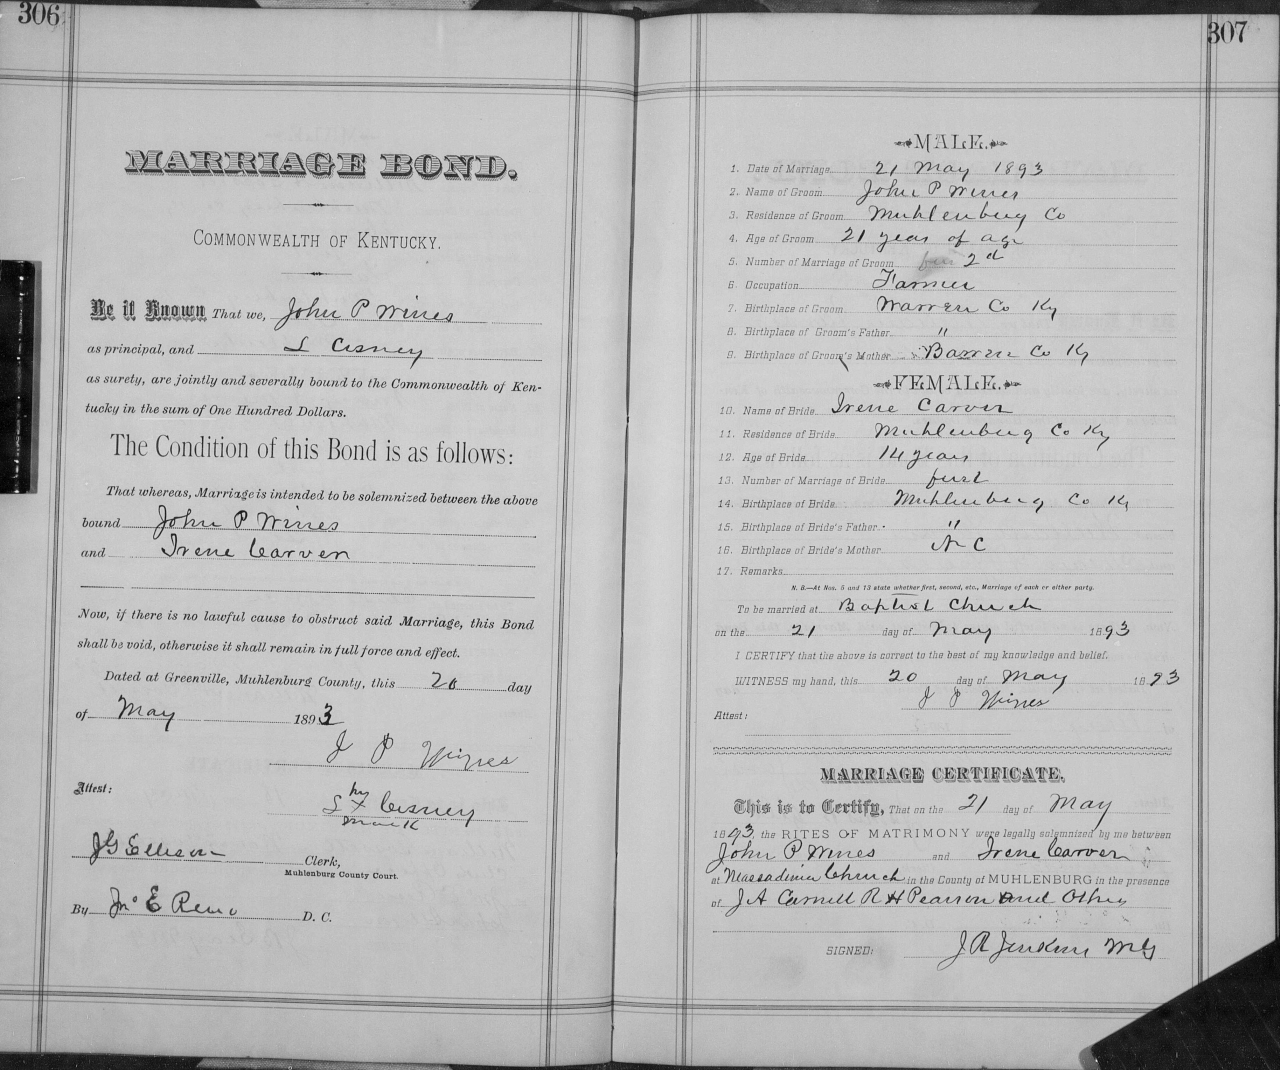 306
MARRIAGE BOND.
COMMONWEALTH OF KENTUCKY.
Be it Known That we, John P Wines
as principal, and L Cisney
as surety, are jointly and severally bound to the Commonwealth of Ken-
tucky in the sum of One Hundred Dollars.
The Condition of this Bond is as follows:
That whereas, Marriage is intended to be solemnized between the above
bound John P Wines
and Irene Carver
Now, if there is no lawful cause to obstruct said Marriage, this Bond
shall be void, otherwise it shall remain in full force and effect.
Dated at Greenville, Muhlenburg County, this 20 day
of May 1893
J P Wines
Attest:
his
L X Cisney
mark
J G Ellison Clerk,
Muhlenburg County Court.
By Jno E Reno D. C.
307
MALE.
1. Date of Marriage 21 May 1893
2. Name of Groom John P Wines
3. Residence of Groom Muhlenburg Co
4. Age of Groom 21 years of age
5. Number of Marriage of Groom 2d
6. Occupation Farmer
7. Birthplace of Groom Warren Co Ky
8. Birthplace of Groom's Father "
9. Birthplace of Groom's Mother Barren Co Ky
FEMALE.
10. Name of Bride Irene Carver
11. Residence of Bride Muhlenburg Co Ky
12. Age of Bride 14 years
13. Number of Marriage of Bride first
14. Birthplace of Bride Muhlenburg Co Ky
15. Birthplace of Bride's Father "
16. Birthplace of Bride's Mother N C
17. Remarks
N. B.—At Nos. 5 and 13 state whether first, second, etc., Marriage of each or either party.
To be married at Baptist Church
on the 21 day of May 1893
I CERTIFY that the above is correct to the best of my knowledge and belief.
WITNESS my hand, this 20 day of May 1893
J P Wines
Attest:
MARRIAGE CERTIFICATE.
This is to Certify, That on the 21 day of May
1893, the RITES OF MATRIMONY were legally solemnized by me between
John P Wines and Irene Carver
at Church in the County of MUHLENBURG in the presence
of J A R H Pearson and Others
SIGNED: J R Jenkins